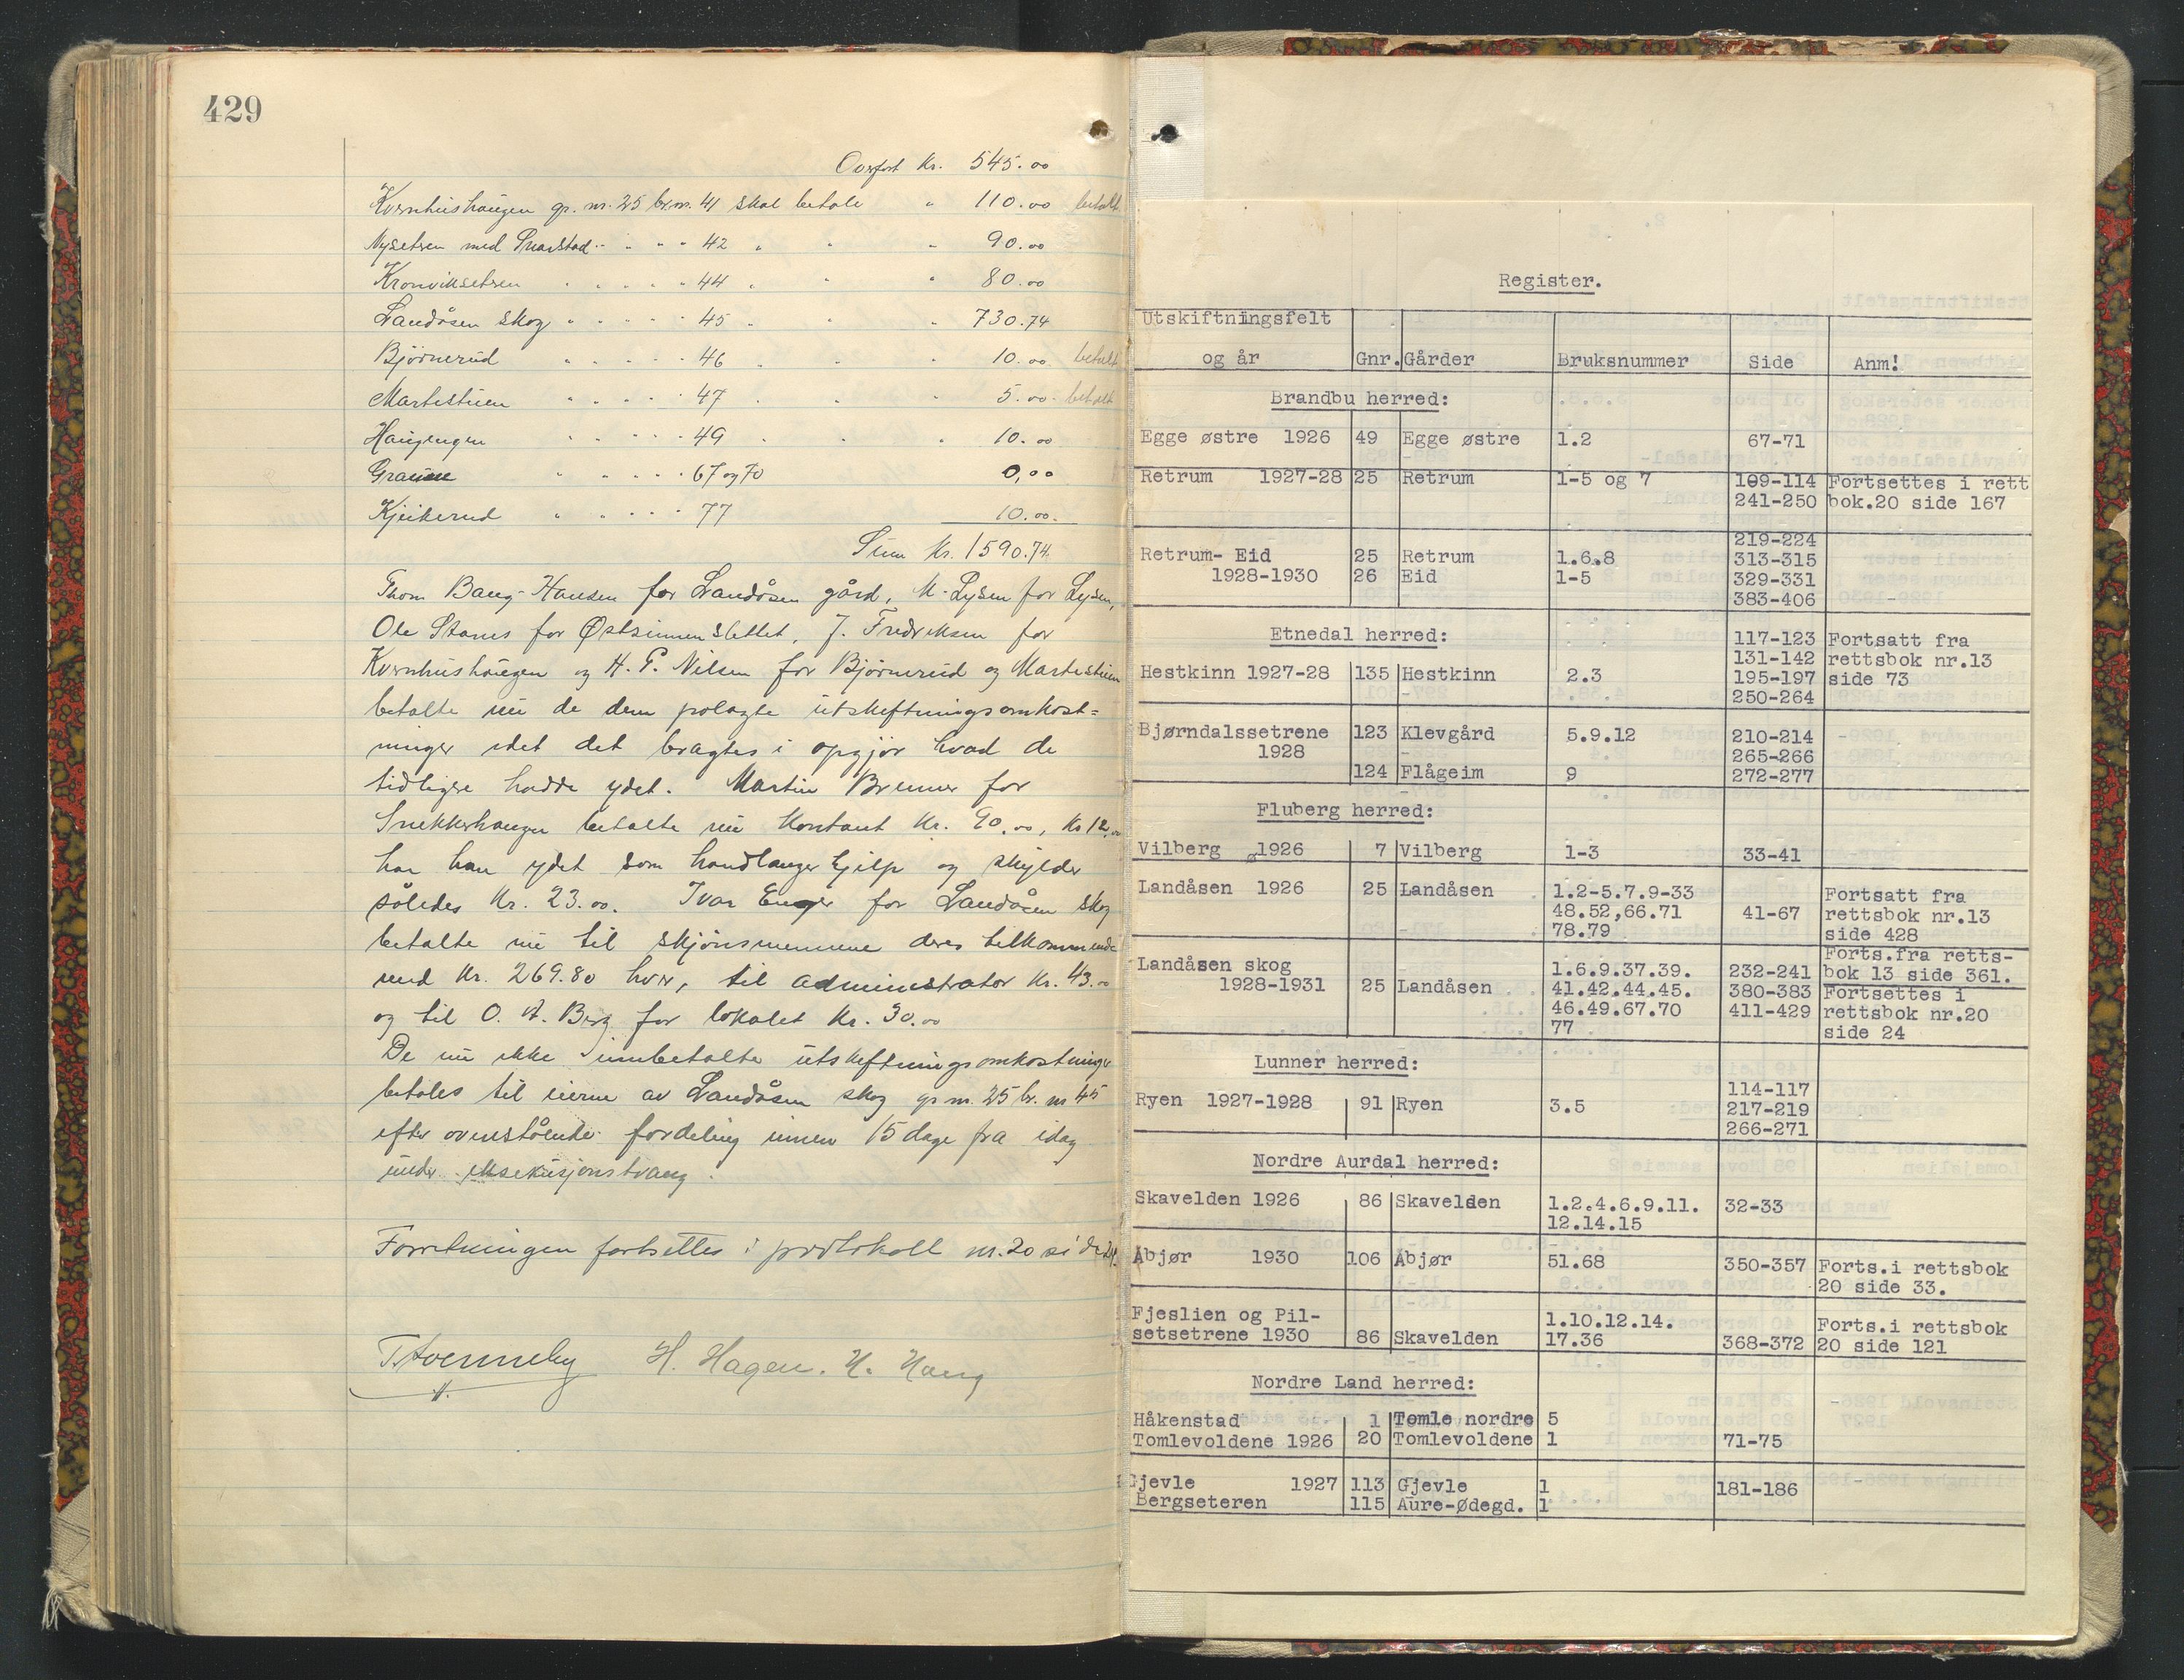 429
Overført Kr. 545.00
Kvernhushaugen gr. nr. 25 br.nr. 41 skal betale " 110.00 betalt
Nysetren med Snarstad " " " " 42 " " " 90.00
Kronviksetren " " " " " 44 " " " 80.00
Landåsen skog " " " " " 45 " " " 730.74
Bjørnerud " " " " " 46 " " " 10.00 betalt
Martestuen " " " " " 47 " " " 5.00 betalt
Haugengen " " " " " 49 " " " 10.00
Graune " " " " " 67 og 70 0,00
Kjeikerud " " " " " 77 10.00
Sum Kr. 1590.74.
Thom Bang-Hansen for Landåsen gård, M. Lysen for Lysen,
Ole Stanes for Østsinnenslettet, J. Fredriksen for
Kvernhushaugen og H. P. Nilsen for Bjørnerud og Martestuen
betalte nu de dem pålagte utskiftningsomkost=
ninger idet det bragtes i opgjør hvad de
tidligere hadde ydet. Martin Brenner for
Snekkerhaugen betalte nu kontant Kr. 90.00, Kr 12.00
har han ydet som handlangerhjelp og skylder
således Kr. 23.00. Ivar Enger for Landåsen skog
betalte nu til skjønsmennene deres tilkommende
med Kr. 269.80 hver, til administrator Kr. 43.00
og til O. A. Berg for lokalet Kr. 30.00
De nu ikke innbetalte utskiftningsomkostninger
betales til eierne av Landåsen skog gr nr. 25 br. nr 45
efter ovenstående fordeling innen 15 dage fra idag
under eksekusjonstvang.
Forretningen fortsettes i protokoll nr. 20 side 24.
T. Hvenneby H. Hagen. H. Haug
Register.
Utskiftningsfelt
og år Gnr. Gårder Bruksnummer Side Anm!
Brandbu herred:
Egge østre 1926 49 Egge østre 1.2 67-71
Retrum 1927-28 25 Retrum 1-5 og 7 109-114 Fortsettes i rett
241-250 bok.20 side 167
219-224
Retrum- Eid 25 Retrum 1.6.8 313-315
1928-1930 26 Eid 1-5 329-331
383-406
Etnedal herred: 117-123 Fortsatt fra
131-142 rettsbok nr.13
Hestkinn 1927-28 135 Hestkinn 2.3 195-197 side 73
250-264
Bjørndalssetrene 123 Klevgård 5.9.12 210-214
1928 265-266
124 Flågeim 9 272-277
Fluberg herred:
Vilberg 1926 7 Vilberg 1-3 33-41
Landåsen 1926 25 Landåsen 1.2-5.7.9-33 Fortsatt fra
48.52,66.71 41-67 rettsbok nr.13
78.79 side 428
Forts.fra retts-
Landåsen skog 1.6.9.37.39. 232-241 bok 13 side 361.
1928-1931 25 Landåsen 41.42.44.45. 380-383 Fortsettes i
46.49.67.70 411-429 rettsbok nr.20
77 side 24
Lunner herred:
114-117
Ryen 1927-1928 91 Ryen 3.5 217-219
266-271
Nordre Aurdal herred:
Skavelden 1926 86 Skavelden 1.2.4.6.9.11. 32-33
12.14.15
Åbjør 1930 106 Åbjør 51.68 350-357 Forts.i rettsbok
20 side 33.
Fjeslien og Pil- 1.10.12.14. Forts.i rettsbok
setsetrene 1930 86 Skavelden 17.36 368-372 20 side 121
Nordre Land herred:
Håkenstad 1 Tomle nordre 5
Tomlevoldene 1926 20 Tomlevoldene 1 71-75
Gjevle 1927 113 Gjevle 1 181-186
Bergseteren 115 Aure-Ødegd. 1